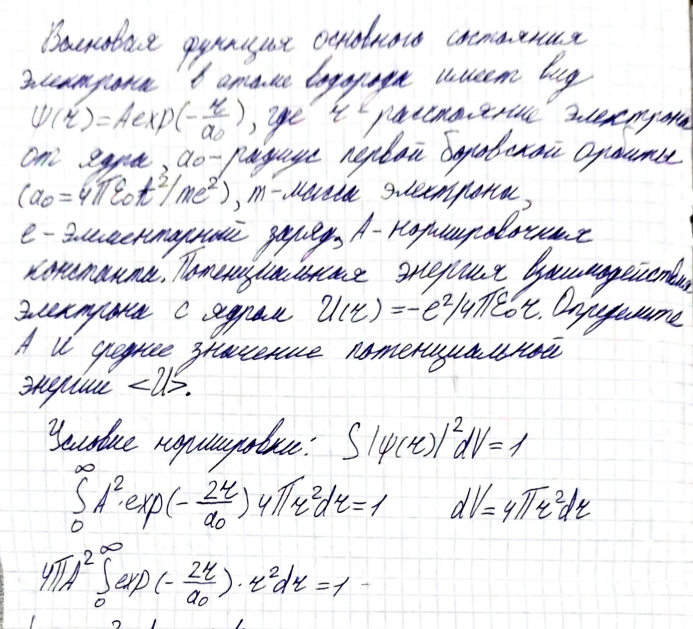 Волновая функция основного состояния
электрона в атоме водорода имеет вид
ψ(r)=Aexp(-r/a₀), где r - расстояние электрона
от ядра, a₀-радиус первой боровской орбиты
(a₀=4πε₀ħ²/me²), m-масса электрона,
e-элементарный заряд, A-нормировочная
константа. Потенциальная энергия взаимодействия
электрона с ядром U(r)=-e²/4πε₀r. Определите
A и среднее значение потенциальной
энергии <U>.
Условие нормировки: ∫|ψ(r)|²dV=1
∫₀^∞ A²·exp(-2r/a₀)4πr²dr=1 dV=4πr²dr
4πA² ∫₀^∞ exp(-2r/a₀)·r²dr=1